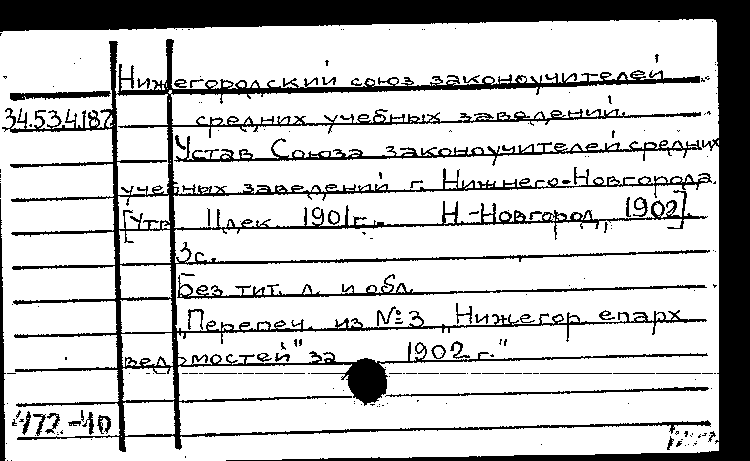 Нижегородский союз законоучителей
34.53.4.187 средних учебных заведений.
Устав Союза законоучителей средних
учебных заведений г. Нижнего-Новгорода.
[Утв. 11 дек. 1901 г. Н.-Новгород, 1902].
3 с.
Без тит. л. и обл.
„Перепеч. из №3 „Нижегор епарх
ведомостей" за 1902 г."
472.-40